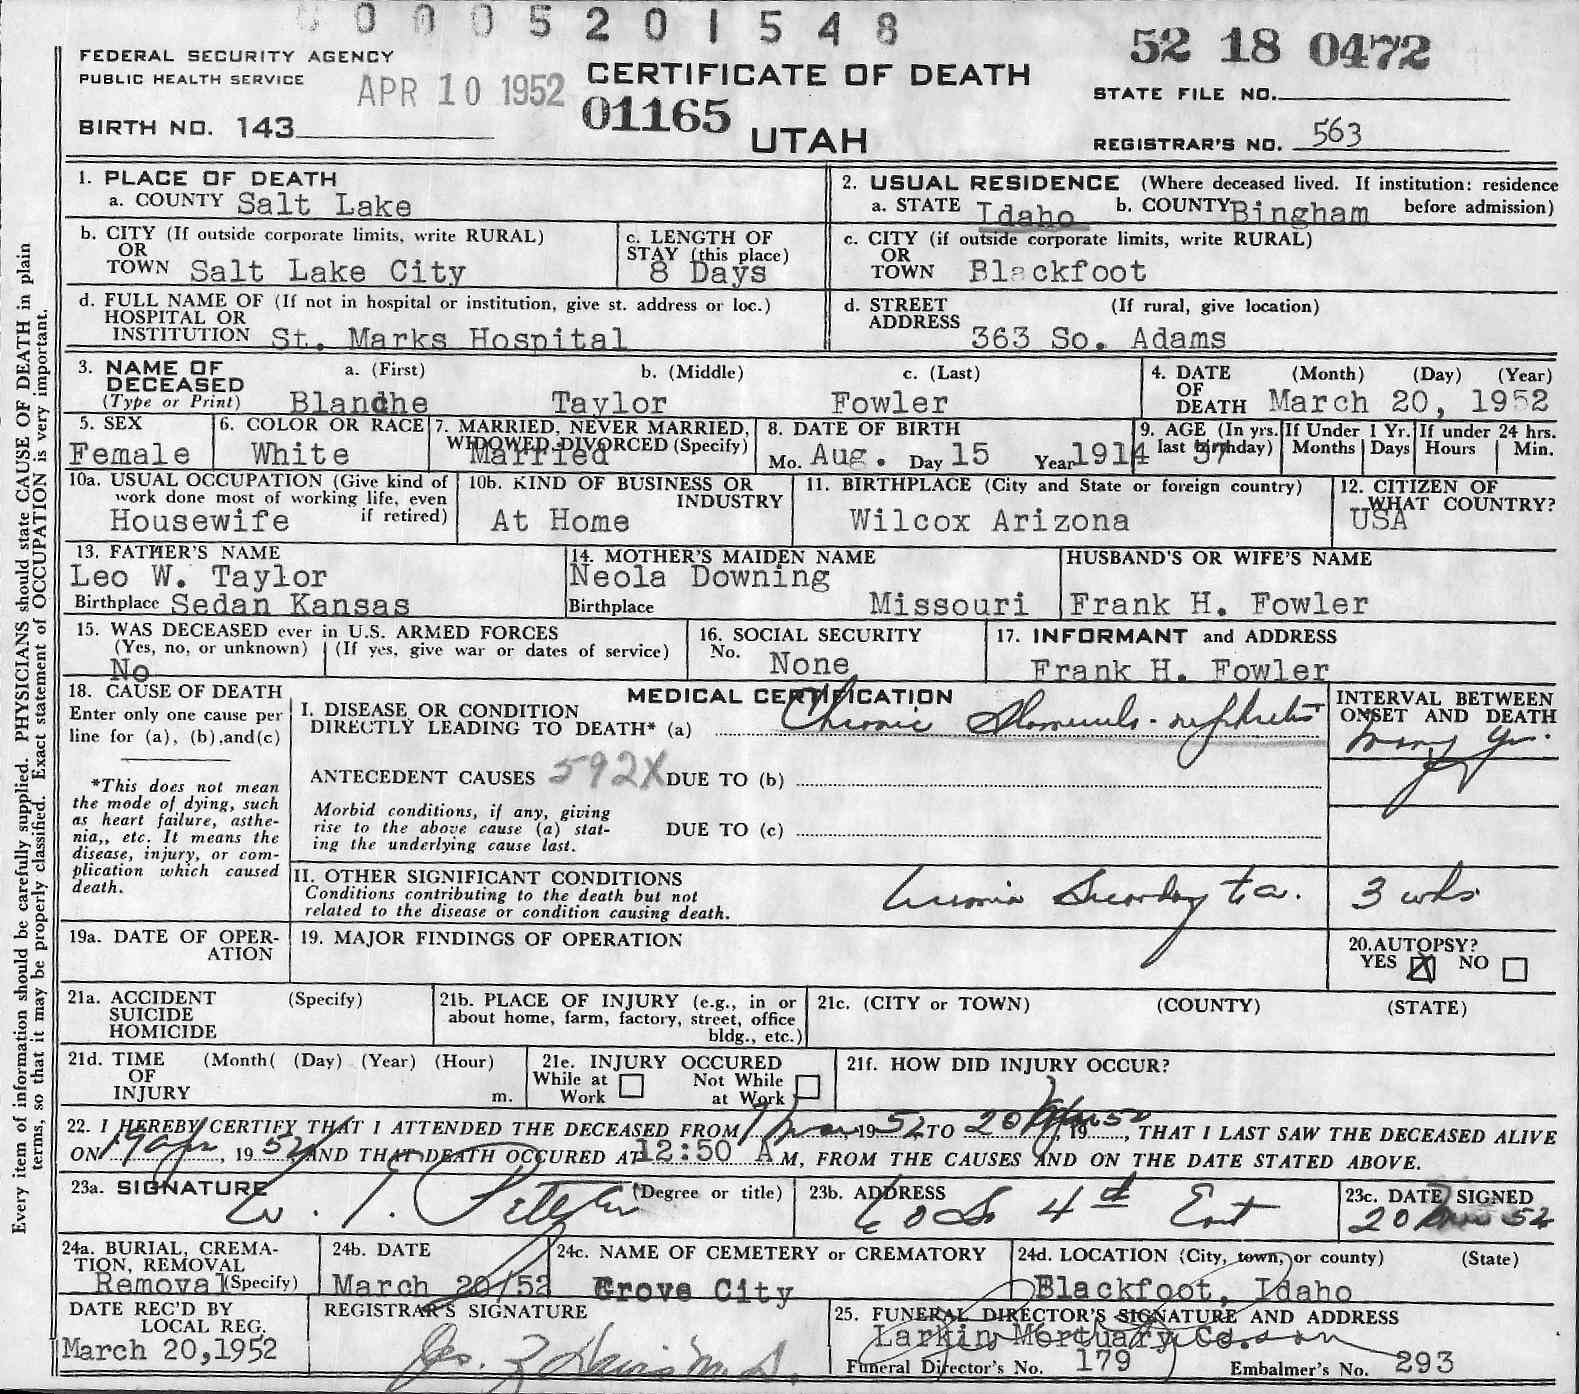 0005201548
FEDERAL SECURITY AGENCY
PUBLIC HEALTH SERVICE
APR 10 1952
CERTIFICATE OF DEATH
52 18 0472
STATE FILE NO.
BIRTH NO. 143
01165
UTAH
REGISTRAR'S NO. 563
1. PLACE OF DEATH
a. COUNTY Salt Lake
2. USUAL RESIDENCE (Where deceased lived. If institution: residence
a. STATE Idaho b. COUNTY Bingham before admission)
b. CITY (If outside corporate limits, write RURAL)
OR
TOWN Salt Lake City
c. LENGTH OF
STAY (this place)
8 Days
c. CITY (if outside corporate limits, write RURAL)
OR
TOWN Blackfoot
d. FULL NAME OF (If not in hospital or institution, give st. address or loc.)
HOSPITAL OR
INSTITUTION St. Marks Hospital
d. STREET (If rural, give location)
ADDRESS
363 So. Adams
3. NAME OF a. (First) b. (Middle) c. (Last)
DECEASED
(Type or Print) Blanche Taylor Fowler
4. DATE (Month) (Day) (Year)
OF
DEATH March 20, 1952
5. SEX
Female
6. COLOR OR RACE
White
7. MARRIED, NEVER MARRIED,
WIDOWED, DIVORCED (Specify)
Married
8. DATE OF BIRTH
Mo. Aug. Day 15 Year 1914
9. AGE (In yrs.
last birthday)
37
If Under 1 Yr.
Months Days
If under 24 hrs.
Hours Min.
10a. USUAL OCCUPATION (Give kind of
work done most of working life, even
if retired)
Housewife
10b. KIND OF BUSINESS OR
INDUSTRY
At Home
11. BIRTHPLACE (City and State or foreign country)
Wilcox Arizona
12. CITIZEN OF
WHAT COUNTRY?
USA
13. FATHER'S NAME
Leo W. Taylor
Birthplace Sedan Kansas
14. MOTHER'S MAIDEN NAME
Neola Downing
Birthplace Missouri
HUSBAND'S OR WIFE'S NAME
Frank H. Fowler
15. WAS DECEASED ever in U.S. ARMED FORCES
(Yes, no, or unknown) (If yes, give war or dates of service)
No
16. SOCIAL SECURITY
No. None
17. INFORMANT and ADDRESS
Frank H. Fowler
18. CAUSE OF DEATH
Enter only one cause per
line for (a), (b),and(c)
*This does not mean
the mode of dying, such
as heart failure, asthe-
nia,, etc. It means the
disease, injury, or com-
plication which caused
death.
MEDICAL CERTIFICATION
I. DISEASE OR CONDITION
DIRECTLY LEADING TO DEATH* (a) Chronic
INTERVAL BETWEEN
ONSET AND DEATH
many yrs.
ANTECEDENT CAUSES 592X DUE TO (b)
Morbid conditions, if any, giving
rise to the above cause (a) stat-
ing the underlying cause last.
DUE TO (c)
II. OTHER SIGNIFICANT CONDITIONS
Conditions contributing to the death but not
related to the disease or condition causing death.
Uremia Secondary to a. 3 wks
19a. DATE OF OPER-
ATION
19. MAJOR FINDINGS OF OPERATION
20. AUTOPSY?
YES X NO
21a. ACCIDENT (Specify)
SUICIDE
HOMICIDE
21b. PLACE OF INJURY (e.g., in or
about home, farm, factory, street, office
bldg., etc.)
21c. (CITY or TOWN) (COUNTY) (STATE)
21d. TIME (Month( (Day) (Year) (Hour)
OF
INJURY m.
21e. INJURY OCCURED
While at Work
Not While at Work
21f. HOW DID INJURY OCCUR?
22. I HEREBY CERTIFY THAT I ATTENDED THE DECEASED FROM 1952 TO 20 , 19 52, THAT I LAST SAW THE DECEASED ALIVE
ON 19 , 19 52 AND THAT DEATH OCCURED AT 12:50 A M, FROM THE CAUSES AND ON THE DATE STATED ABOVE.
23a. SIGNATURE (Degree or title)
23b. ADDRESS
4th East
23c. DATE SIGNED
20 52
24a. BURIAL, CREMA-
TION, REMOVAL
Removal (Specify)
24b. DATE
March 20/52
24c. NAME OF CEMETERY or CREMATORY
Grove City
24d. LOCATION (City, town, or county) (State)
Blackfoot, Idaho
DATE REC'D BY
LOCAL REG.
March 20,1952
REGISTRAR'S SIGNATURE
25. FUNERAL DIRECTOR'S SIGNATURE AND ADDRESS
Larkin Mortuary Co.
Funeral Director's No. 179 Embalmer's No. 293
Every item of information should be carefully supplied. PHYSICIANS should state CAUSE OF DEATH in plain
terms, so that it may be properly classified. Exact statement of OCCUPATION is very important.